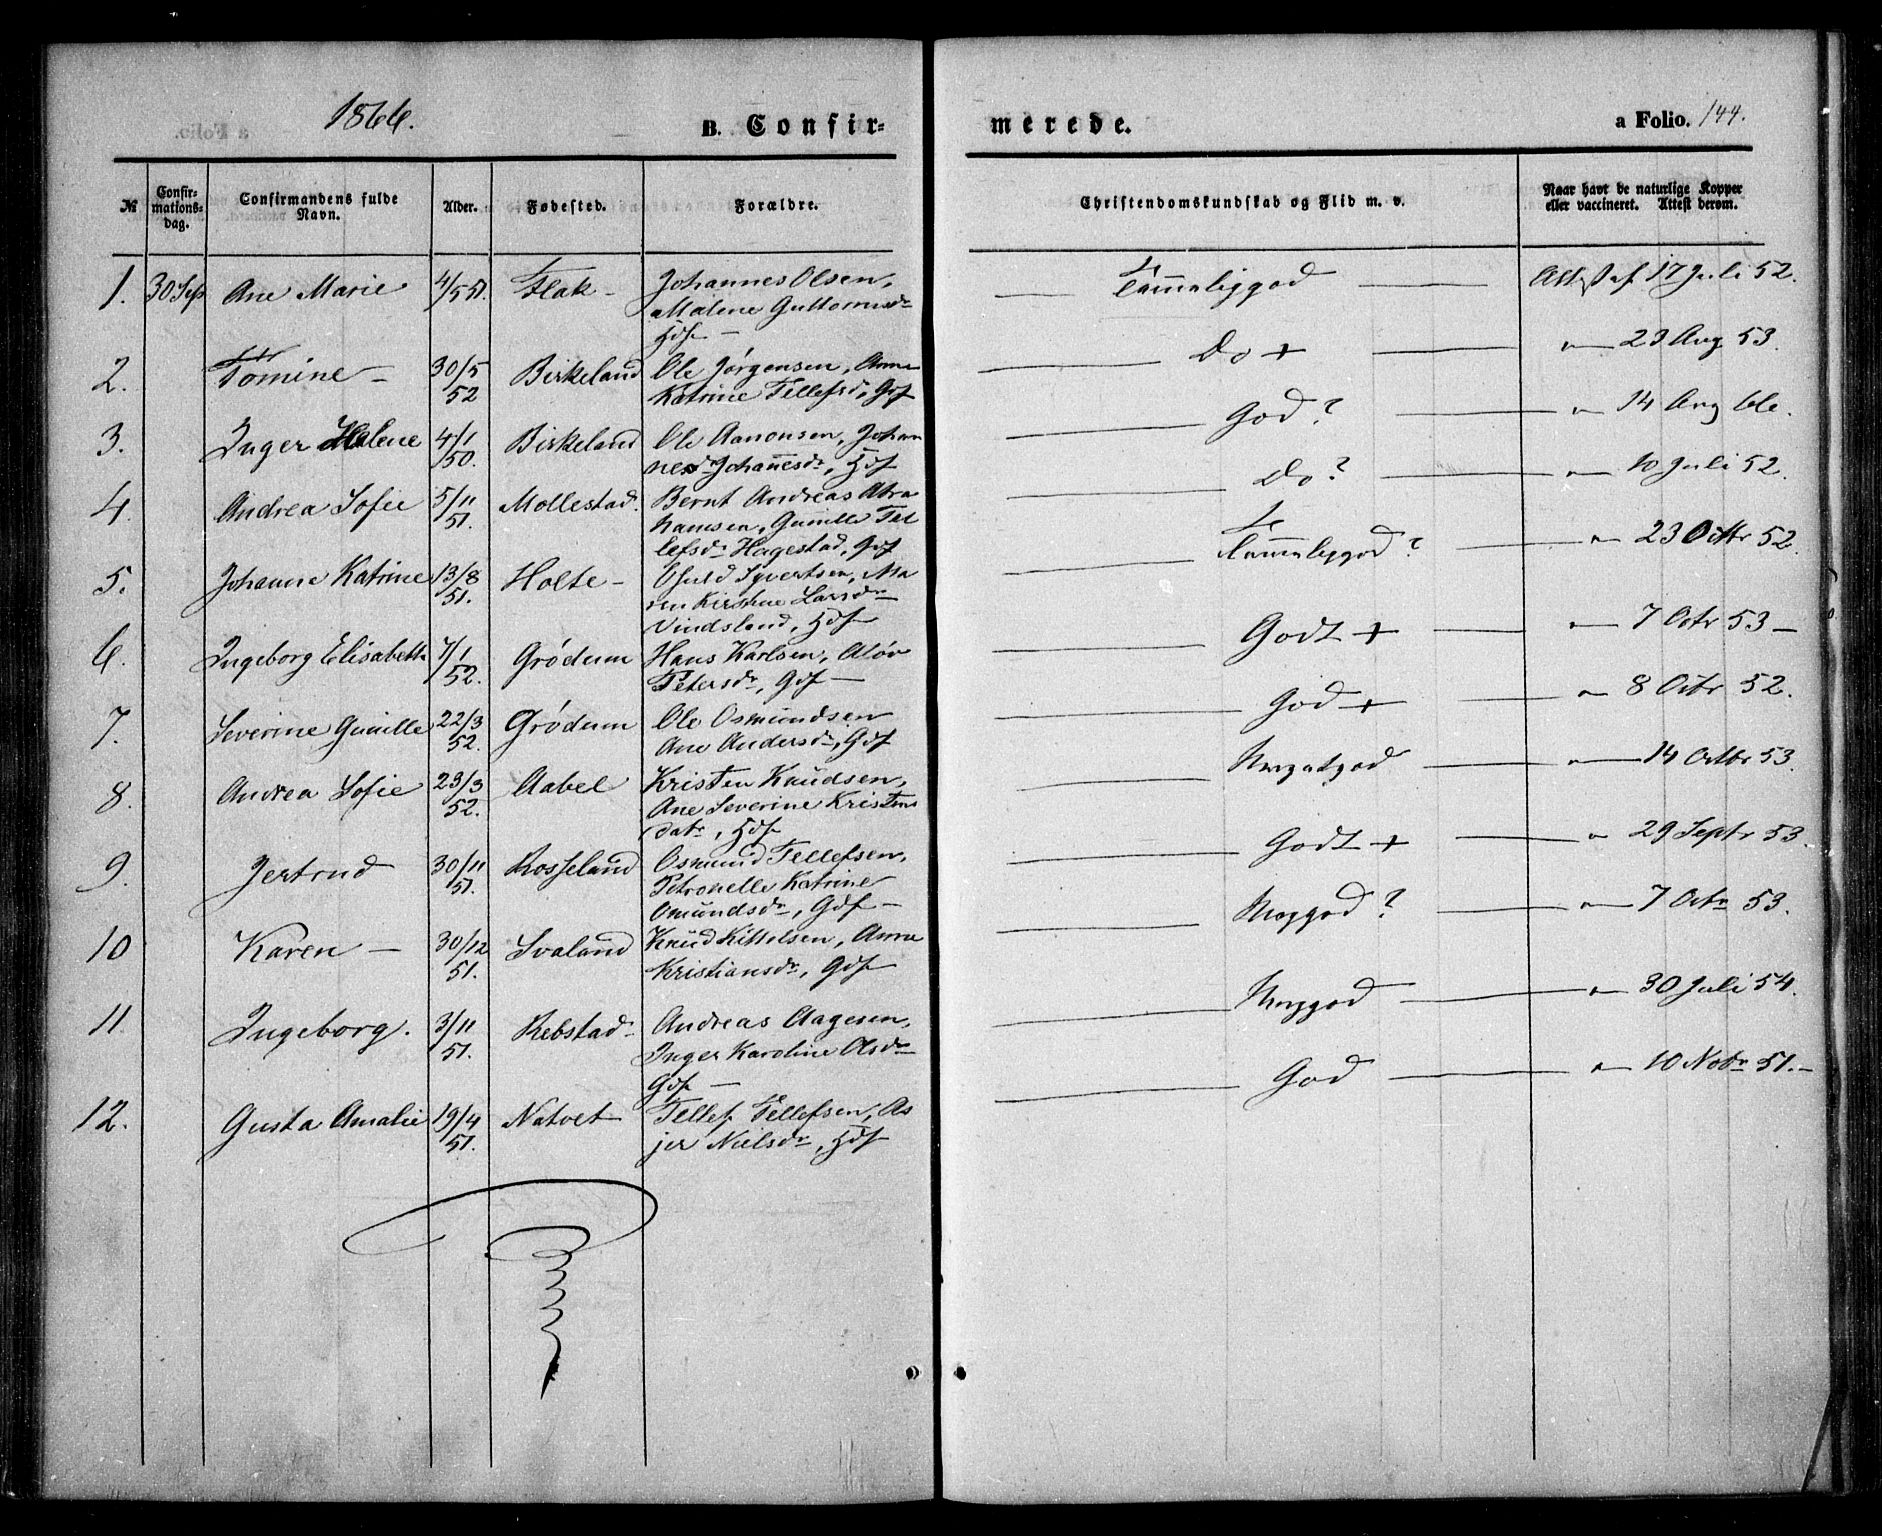 1866.
B. Confir-
merede.
a Folio. 144.
№
Confir-
mations-
dag.
Confirmandens fulde
Navn.
Alder.
Fødested.
Forældre.
Christendomskundskab og Flid m. v.
Naar havt de naturlige Kopper
eller vaccineret. Attest derom.
1. 30 Sep Ane Marie 4/5 51. Flak – Johannes Olsen,
Malene Guttormsdr
Hdf –
Temmeliggod Attest af 17 Juli 52.
2. Tomine – 30/5 Birkeland Ole Jørgensen, Anne
52 Katrine Tellefsd, Gdf
Do + " 23 Aug 53.
3. Inger Helene 4/1 Birkeland Ole Aanonsen, Johan
50. nesdr Johannesdr, Hdf
God ? " 14 Aug 66.
4. Andrea Sofie 5/11 Mollestad. Bernt Andreas Abra
51. hamsen, Gunille Tel
lefsdr Hagestad, Gdf
Do ? " 10 Juli 52.
5. Johanne Katrine 13/8 Holte – Syvertsen, Ma
51. ren Kirstine Larsdr
Vindsland, Hdf
Temmeliggod ? " 23 Octbr 52.
6. Ingeborg Elisabeth 7/1 Grødum Hans Karlsen,
52. Petersdr, Gdf –
Godt + " 7 Octr 53 –
7. Severine Gunille 22/3 Grødum Ole Osmundsen
52. Ane Andersdr, Gdf
God + " 8 Octr 52.
8. Andrea Sofie 23/3 Aabel Kristen Knudsen,
52. Ane Severine Kristens
datr, Hdf
Megetgod " 14 Octbr 53.
9. Jertrud 30/11 Rosseland Osmund Tellefsen,
51. Petronelle Katrine
Omundsdr, Gdf –
Godt + " 29 Septr 53.
10 Karen – 30/12 Svaland Knud Kittelsen, Anne
51. Kristiansdr, Gdf
Meggod ? " 7 Octr 53.
11 Ingeborg. 3/11 Rebstad – Andreas Aagesen,
51. Inger Karoline Olsdr
Gdf –
Meggod " 30 Juli 54.
12. Gusta Amalie 19/4 Natvet Tellef Tellefsen, As
51. jer Nielsdr, Hdf
God " 10 Nobr 51. –